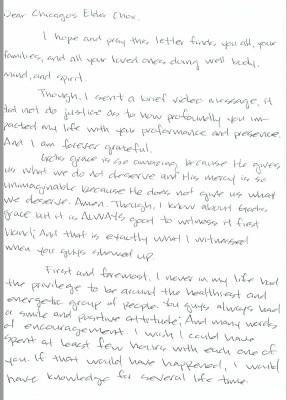 Dear Chicagos Elder Choir.
I hope and pray this letter finds you all, your
families, and all your loved ones doing well body,
mind, and spirit.
Though, I sent a brief video message, it
did not do justice as to how profoundly you im-
pacted my life with your proformance and presence.
And I am forever grateful.
Gods grace is so amazing because He gives
us what we do not deserve and His mercy is so
unimaginable because He does not give us what
we deserve. Amen. Though, I know about Gods
grace but it is ALWAYS good to witness it first
hand; And that is exactly what I witnessed
when you guys showed up.
First and foremost. I never in my life had
the privilege to be around the healthiest and
energetic group of people. You guys always had
a smile and positive attitude; And many words
of encouragement. I wish I could have
spent at least few hours with each one of
you. If that would have happened, I would
have knowledge for several life time.